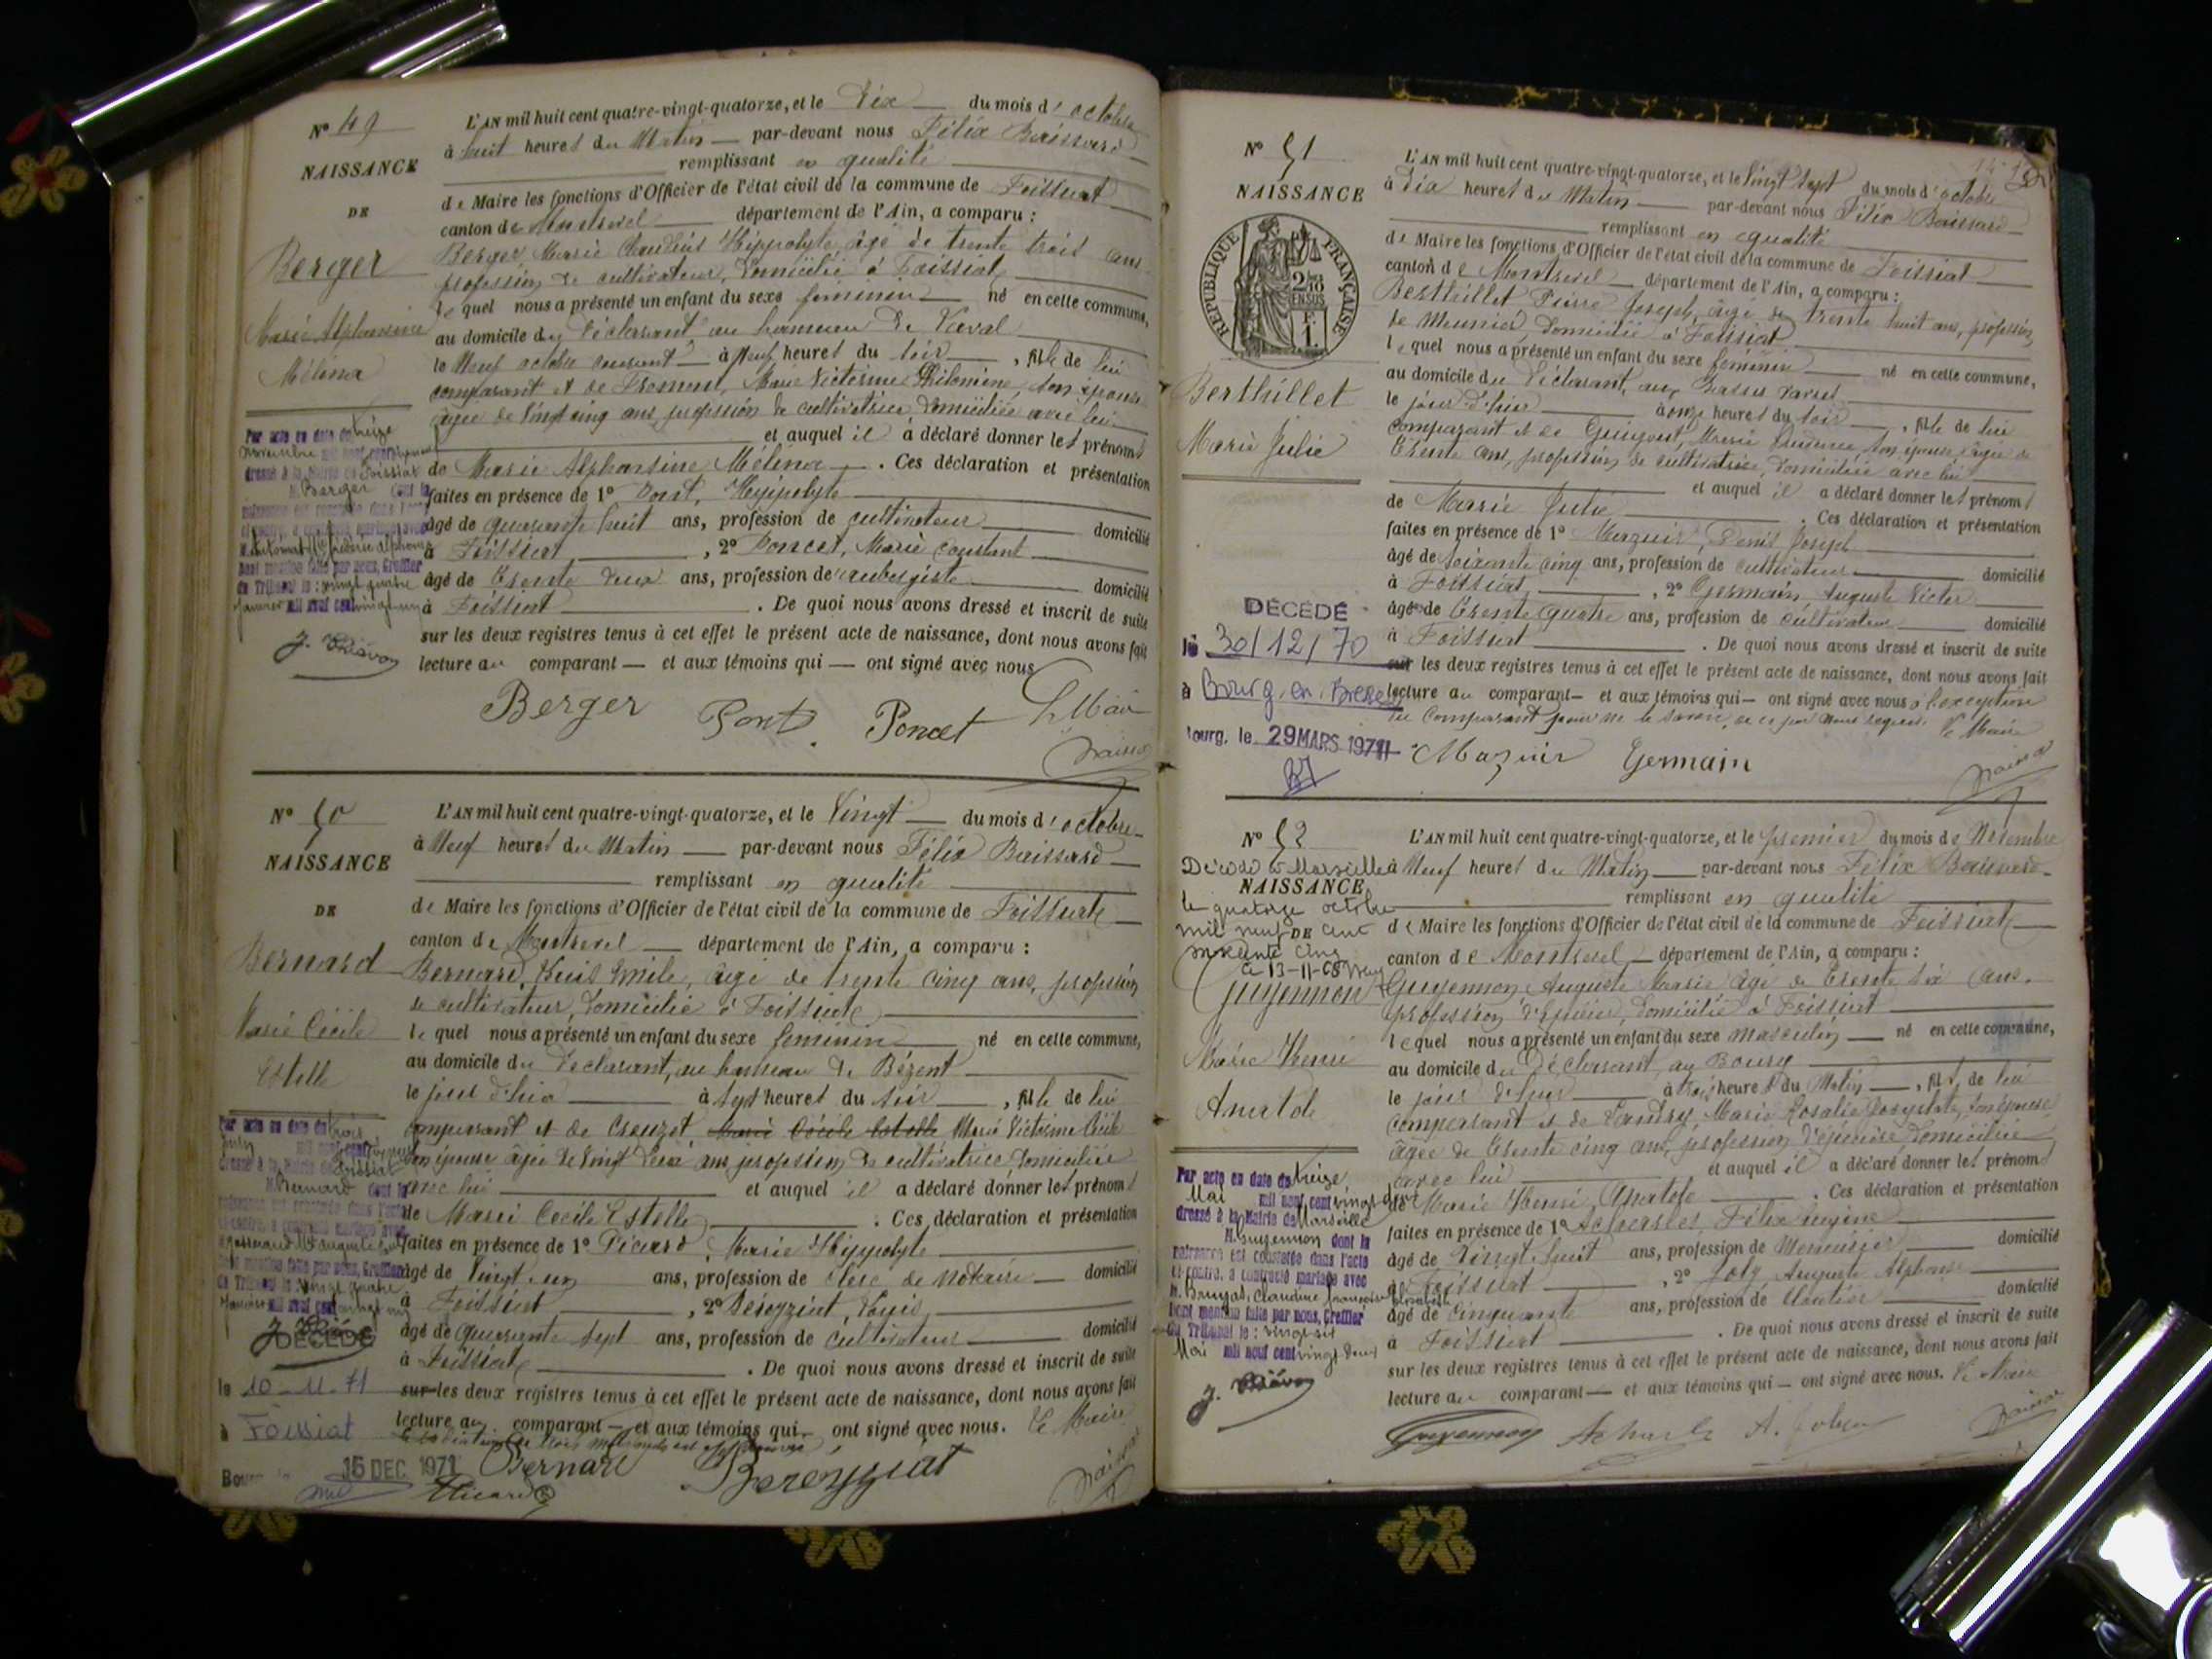 N° 49
NAISSANCE
DE
Berger
Marie Alphonsine
Mélina
L'AN mil huit cent quatre-vingt-quatorze, et le Dix du mois d'octobre
à huit heures du Matin par-devant nous Félix Baissard
remplissant en qualité
de Maire les fonctions d'Officier de l'état civil de la commune de Foissiat
canton de Montrevel département de l'Ain, a comparu :
Berger Marie Claudius Hippolyte âgé de trente trois ans
profession de cultivateur, domicilié à Foissiat
lequel nous a présenté un enfant du sexe féminin né en cette commune,
au domicile du déclarant au hameau de
le Neuf octobre courant à Neuf heures du soir, fille de lui
comparant et de Marie Victorine Philomène, son épouse
âgée de vingt cinq ans, profession de cultivatrice domiciliée avec lui
et auquel il a déclaré donner les prénoms
de Marie Alphonsine Mélina. Ces déclaration et présentation
faites en présence de 1° Pont, Hyppolyte
âgé de quarante huit ans, profession de cultivateur domicilié
à Foissiat, 2° Poncet, Marie Constant
âgé de trente deux ans, profession de aubergiste domicilié
à Foissiat. De quoi nous avons dressé et inscrit de suite
sur les deux registres tenus à cet effet le présent acte de naissance, dont nous avons fait
lecture au comparant et aux témoins qui ont signé avec nous
Berger Pont Poncet Le Maire
Par acte en date du treize
novembre mil neuf cent
dressé à la Mairie de Foissiat
M. Berger dont la
naissance est constatée dans l'acte
ci-contre, a contracté mariage avec
Dont mention faite par nous, Greffier
du Tribunal le : vingt quatre
janvier mil neuf cent vingt un
N° 50
NAISSANCE
DE
Bernard
Marie Cécile
Estelle
L'AN mil huit cent quatre-vingt-quatorze, et le Vingt du mois d'octobre
à Neuf heures du Matin par-devant nous Félix Baissard
remplissant en qualité
de Maire les fonctions d'Officier de l'état civil de la commune de Foissiat
canton de Montrevel département de l'Ain, a comparu :
Bernard, Louis Emile, âgé de trente cinq ans, profession
de cultivateur, domicilié à Foissiat
lequel nous a présenté un enfant du sexe féminin né en cette commune,
au domicile du déclarant, au hameau de Bézent
le jour d'hier à sept heures du soir, fille de lui
comparant et de Creuzet Marie Cécile Estelle Marie Victorine Cécile
son épouse âgée de vingt deux ans profession de cultivatrice domiciliée
avec lui et auquel il a déclaré donner les prénoms
de Marie Cécile Estelle. Ces déclaration et présentation
faites en présence de 1° Picard, Marie Hippolyte
âgé de Vingt un ans, profession de clerc de notaire domicilié
à Foissiat, 2° Louis
âgé de quarante sept ans, profession de cultivateur domicilié
à Foissiat. De quoi nous avons dressé et inscrit de suite
sur les deux registres tenus à cet effet le présent acte de naissance, dont nous avons fait
lecture au comparant et aux témoins qui ont signé avec nous. Le Maire
Bernard
Picard
Par acte en date du trois
dressé à la Mairie de Foissiat
M. Bernard dont la
naissance est constatée dans l'acte
ci-contre, a contracté mariage avec
Dont mention faite par nous, Greffier
du Tribunal le : vingt quatre
janvier mil neuf cent vingt un
DÉCÉDÉ
le 10-11-71
à Foissiat
15 DEC. 1971
N° 51
NAISSANCE
RÉPUBLIQUE FRANÇAISE
Berthillet
Marie Julie
L'AN mil huit cent quatre-vingt-quatorze, et le Vingt sept du mois d'octobre
à Dix heures du Matin par-devant nous Félix Baissard
remplissant en qualité
de Maire les fonctions d'Officier de l'état civil de la commune de Foissiat
canton de Montrevel département de l'Ain, a comparu :
Berthillet Pierre Joseph, âgé de trente huit ans, profession
de Meunier domicilié à Foissiat
lequel nous a présenté un enfant du sexe féminin né en cette commune,
au domicile du déclarant, aux
le jour d'hier à onze heures du soir, fille de lui
comparant et de Marie son épouse âgée de
trente ans, profession de cultivatrice, domiciliée avec lui
et auquel il a déclaré donner les prénoms
de Marie Julie. Ces déclaration et présentation
faites en présence de 1° Mazuir, Denis Joseph
âgé de soixante cinq ans, profession de cultivateur domicilié
à Foissiat, 2° Germain Auguste Victor
âgé de trente quatre ans, profession de cultivateur domicilié
à Foissiat. De quoi nous avons dressé et inscrit de suite
sur les deux registres tenus à cet effet le présent acte de naissance, dont nous avons fait
lecture au comparant et aux témoins qui ont signé avec nous à l'exception
du comparant pour ne le savoir, de ce par nous requis. Le Maire
Mazuir Germain
DÉCÉDÉ
le 30/12/70
à Bourg-en-Bresse
Bourg, le 29 MARS 1971
N° 52
NAISSANCE
DE
Décédé à Marseille
le quatorze octobre
mil neuf cent
soixante cinq
Guyennon
Marie Henri
Anatole
L'AN mil huit cent quatre-vingt-quatorze, et le premier du mois de Novembre
à Neuf heures du Matin par-devant nous Félix Baissard
remplissant en qualité
de Maire les fonctions d'Officier de l'état civil de la commune de Foissiat
canton de Montrevel département de l'Ain, a comparu :
Guyennon Auguste Marie âgé de trente six ans
profession d'épicier, domicilié à Foissiat
lequel nous a présenté un enfant du sexe masculin né en cette commune,
au domicile du déclarant, au Bourg
le jour d'hier à trois heures du Matin, fils de lui
comparant et de Landry Marie Rosalie son épouse
âgée de trente cinq ans, profession d'épicière domiciliée
avec lui et auquel il a déclaré donner les prénoms
de Marie Henri Anatole. Ces déclaration et présentation
faites en présence de 1° Félix Eugène
âgé de Vingt huit ans, profession de Menuisier domicilié
à Foissiat, 2° Joly Auguste Alphonse
âgé de cinquante ans, profession de domicilié
à Foissiat. De quoi nous avons dressé et inscrit de suite
sur les deux registres tenus à cet effet le présent acte de naissance, dont nous avons fait
lecture au comparant et aux témoins qui ont signé avec nous. Le Maire
Guyennon
Par acte en date du treize
Mai mil neuf cent vingt deux
dressé à la Mairie de Marseille
M. Guyennon dont la
naissance est constatée dans l'acte
ci-contre, a contracté mariage avec
M. Bruyas, Claudine Françoise Elisabeth
Dont mention faite par nous, Greffier
du Tribunal le : vingt six
Mai mil neuf cent vingt deux